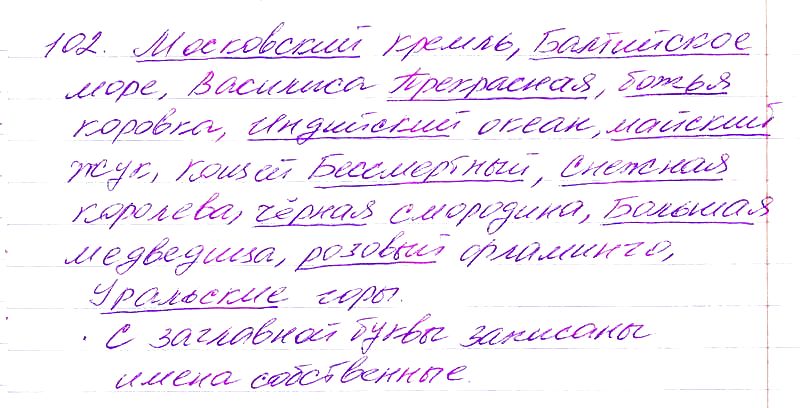 102. Московский кремль, Балтийское
море, Василиса Прекрасная, божья
коровка, Индийский океан, майский
жук, Кощей Бессмертный, снежная
королева, чёрная смородина, Большая
медведица, розовый фламинго,
Уральские горы.
· С заглавной буквы записаны
имена собственные.